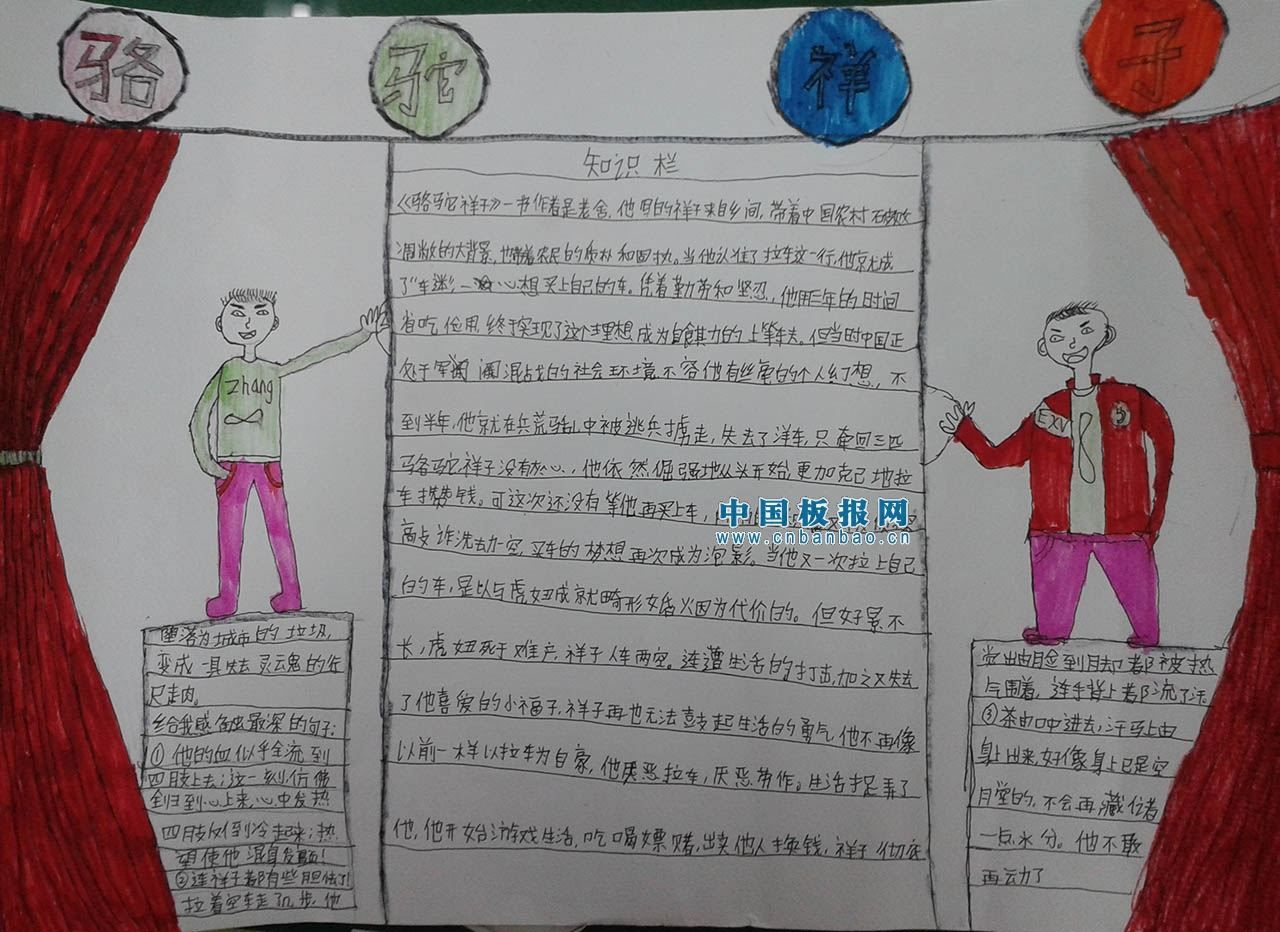 骆 驼 祥 子
知识栏
《骆驼祥子》一书作者是老舍,他写的祥子来自乡间,带着中国农村破败
凋敝的大背景,也带着农民的质朴和固执。当他认准了拉车这一行,他就成
了"车迷"一心想买上自己的车。凭着勤劳和坚忍,他用三年的时间
省吃俭用,终于实现了这个理想成为自食其力的上等车夫。但当时中国正
处于军阀混战的社会环境,不容他有些的个人幻想,不
到半年,他就在兵荒马乱中被逃兵掳走,失去了洋车,只牵回三匹
骆驼祥子没有灰心,他依然倔强地从头开始,更加克己地拉
车攒钱。可这次还没有等他再买上车,
敲诈洗劫一空,买车的梦想再次成为泡影。当他又一次拉上自己
的车,是以与虎妞成就畸形婚姻为代价的。但好景不
长,虎妞死于难产,祥子人车两空。连遭生活的打击,加之又失去
了他喜爱的小福子,祥子再也无法鼓起生活的勇气,他不再像
以前一样以拉车为自豪,他厌恶拉车,厌恶劳作。生活捉弄了
他,他开始游戏生活,吃喝嫖赌,出卖他人换钱,祥子彻底
堕落为城市的垃圾,
变成一具失去灵魂的行
尸走肉。
给我感触最深的句子:
①他的血似乎全流到
四肢上去;这一刻仿佛
全归到心上来,心中发热
四肢反倒冷起来;热
望使他混身发颤!
②连祥子都有些胆怯了!
拉着空车走了几步,他
觉出由脸到脚都被热
气围着,连手背上都流了汗。
③茶由口中进去,汗马上由
身上出来,好像身上已是空
膛的,不会再藏住者
一点水分。他不敢
再动了
zhang
EXV
中国板报网
www.cnbanbao.cn